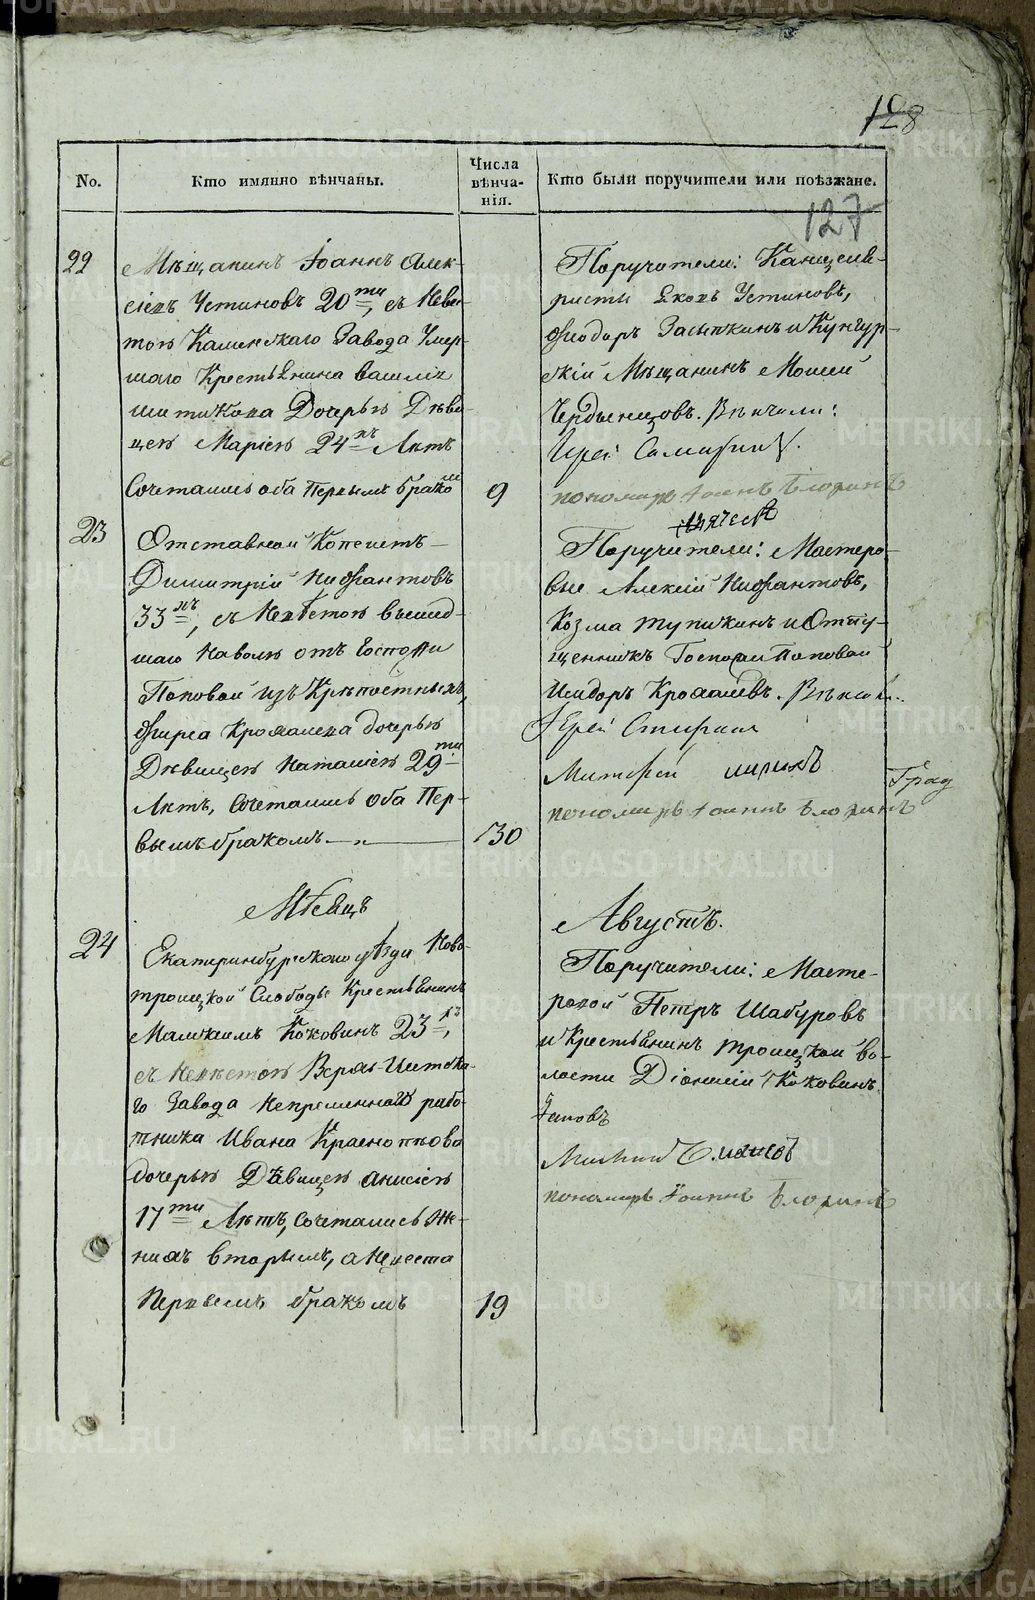 128
127
No.
Кто имянно вѣнчаны.
Числа
вѣнча-
нія.
Кто были поручители или поѣзжане.
22
Мѣщанинъ Іоаннъ Алек-
сіевъ Устиновъ 20ти, съ Неве-
стою Каменскаго Завода Умер-
шаго Крестьянина Василія
Дочерью Дѣви-
цею Маріею 24хъ Лѣтъ
Сочетались оба Первымъ бракомъ
9
Поручители: Канцеля-
ристы Яковъ Устиновъ,
Ѳеодоръ Засыпкинъ и Кунгур-
скій Мѣщанинъ Моисей
Чердынцовъ. Вѣнчали:
Іерей
пономарь Іоаннъ
23
Отставной Копеистъ
Димитрій Ниѳантовъ
33хъ, съ Невѣстою вышед-
шаго наволю отъ Госпожи
Поповой изъ Крѣпостныхъ,
Ѳирса Кромалева дочерью
Дѣвицею Наталіею 29ти
Лѣтъ, Сочетались оба Пер-
вымъ бракомъ
30
Поручители: Мастеро-
вые Алексій Ниѳантовъ,
Козма Тупикинъ и Отпу-
щенникъ Госпожи Поповой
Исидоръ Кромалевъ. Вѣнчал.
Іерей Стефанъ
пономарь Іоаннъ
Град
Мѣсяцъ
Августъ.
24
Екатеринбургскаго уѣзда Ново-
троицкой Слободы Крестьянинъ
Максимъ Коковинъ 23хъ,
съ Невѣстою Верхъ-Исетска-
го Завода Непременнаго рабо-
тника Ивана Красноперова
дочерью Дѣвицею Анисіею
17ти Лѣтъ, Сочетались Же-
нихъ вторымъ, а Невеста
Первымъ бракомъ
19
Поручители: Масте-
ровой Петръ Шабуровъ
и Крестьянинъ Троицкой во-
лости Діонисій Коковинъ.
пономарь Іоаннъ
METRIKI.GASO-URAL.RU